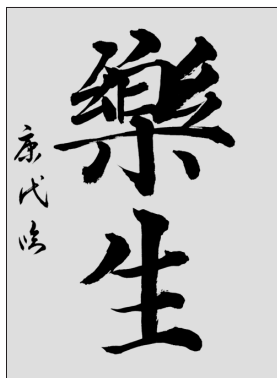 樂生
康代臨